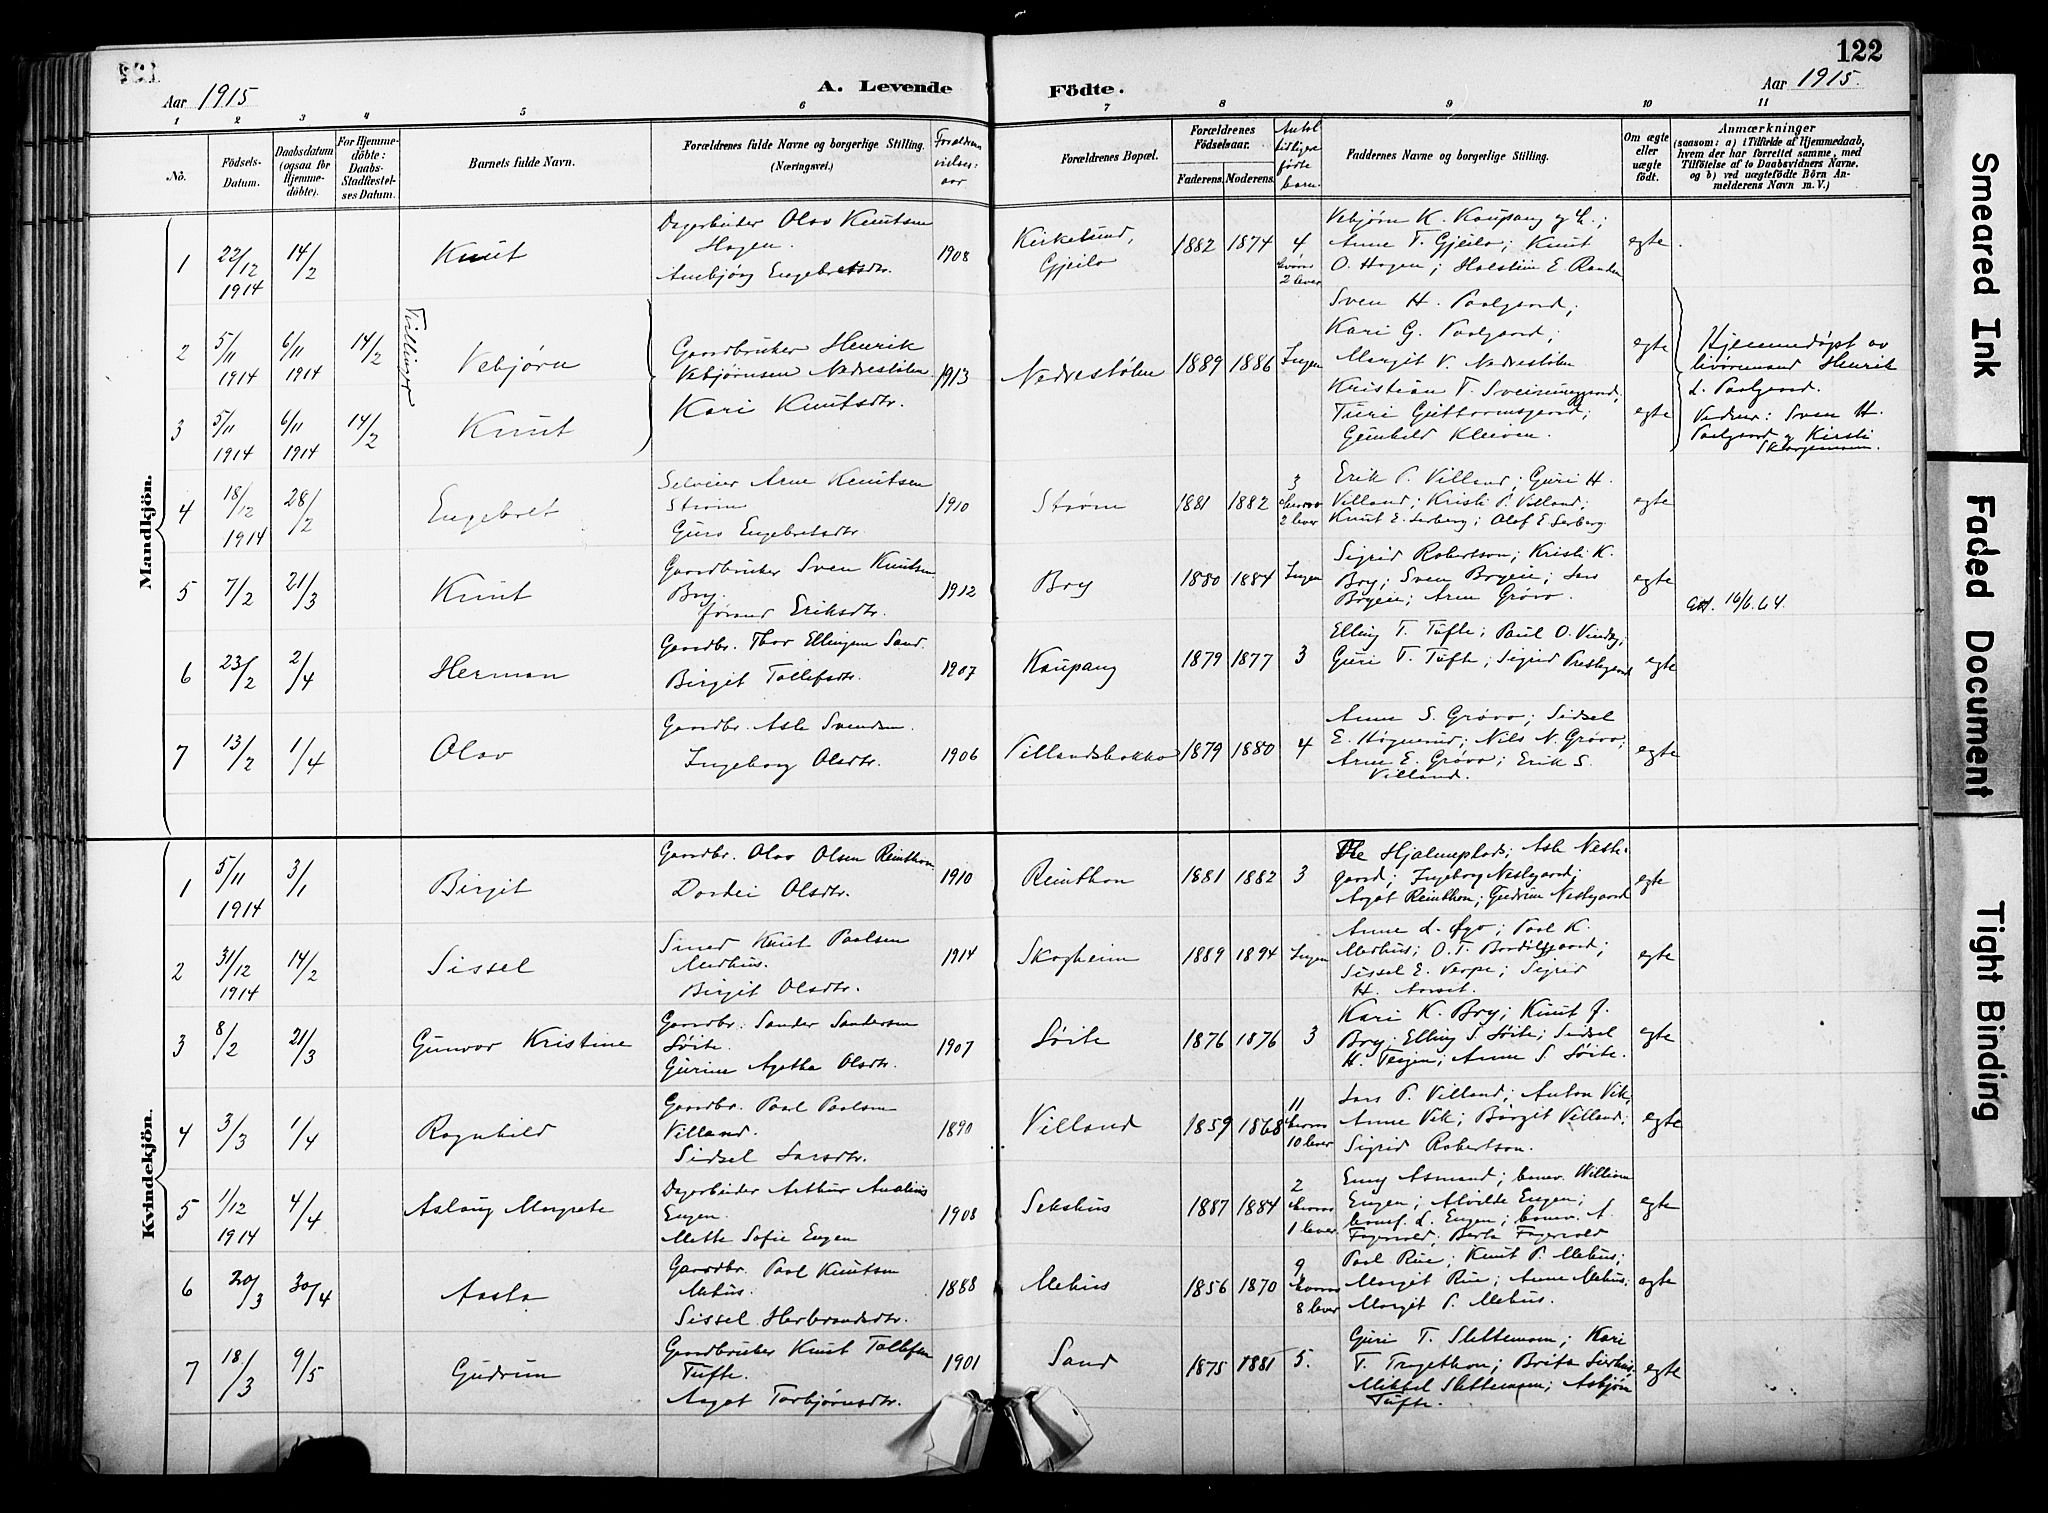 122
Aar 1915
A. Levende Födte.
Aar 1915.
1 2 3 4 5 6 7 8 9 10 11
No.
Födsels-Datum.
Daabsdatum (ogsaa for Hjemme-döbte).
For Hjemme-döbte: Daabs-Stadfæstel-ses Datum.
Barnets fulde Navn.
Forældrenes fulde Navne og borgerlige Stilling.
(Næringsvei.)
Forældrenes Bopæl.
Forældrenes Födselsaar.
Faderens. Moderens.
Antal tidligere fødte barn.
Faddernes Navne og borgerlige Stilling.
Om ægte eller uægte födt.
Anmærkninger
(saasom: a) i Tilfælde af Hjemmedaab,
hvem der har forrettet samme, med
Tilföielse af to Daabsvidners Navne.
og b) ved uægtefödte Börn An-
melderens Navn m. V.)
Mandkjön.
1 22/12 1914 14/2 Knut
Dagarbeider Olav Knutsen
Hagen.
Ambjørg Engebretsdtr.
1908
Kirkelund,
Gjeilo
1882 1874 4 hvorav 2 lever
Vebjørn K. Kaupang og h.;
Anne T. Gjeilo; Knut
O. Hagen; Holstein E. Randen
egte
Tvillinger
2 5/11 1914 6/11 1914 14/2 Vebjørn
Gaardbruker Henrik
Vebjørnsen Nedrestølen
Kari Knutsdtr.
1913
Nedrestølen
1889 1886 Ingen
Sven H. Paalgaard;
Kari G. Paalgaard;
Margit V. Nedrestølen
egte
Hjemmedøpt av
Henrik
L. Paalgaard.
Vidner: Sven H.
Paalgaard og Kirsti
3 5/11 1914 6/11 1914 14/2 Knut
Kristian T. Sveinunggaard,
Turi Guttormsgaard;
Gunhild Kleiven.
egte
4 18/12 1914 28/2 Engebret
Selveier Arne Knutsen
Strøm
Guro Engebretsdtr.
1910
Strøm
1881 1882 3 hvorav 2 lever
Erik P. Villand; Guri H.
Villand; Kristi P. Villand;
Knut E. Serberg; Olof E. Serberg
egte
5 7/2 21/3 Knut
Gaardbruker Sven Knutsen
Bry.
Jørand Eriksdtr.
1912
Bry
1880 1884 Ingen
Sigrid Robertson; Kristi K.
Bry; Sven Brgeie; Lars
Brgeie; Arne Grøvo.
egte
16/6.64.
6 23/2 2/4 Herman
Gaardbr. Thor Ellingsen Sand.
Birgit Tollefsdtr.
1907
Kaupang
1879 1877 3
Elling T. Tufte; Paul O. Vindeg;
Guri T. Tufte; Sigrid Prestegaard
egte
7 13/2 1/4 Olav
Gaardbr. Asle Svendsen
Ingeborg Olsdtr.
1906
Villandsbakke
1879 1880 4
Anne S. Grøvo; Sidsel
E. Høgnerud; Nils N. Grøvo;
Arne E. Grøvo; Erik S.
Villand.
egte
Kvindekjön.
1 5/11 1914 3/1 Birgit
Gaardbr. Olav Olsen Reinthon
Dordei Olsdtr.
1910
Reinthon
1881 1882 3
Ole Hjalmeplads; Asle Neste-
gaard; Ingeborg Nestegaard;
Aagot Reinthon; Gudrun Nestegaard
egte
2 31/12 1914 14/2 Sissel
Smed Knut Paalsen
Medhus.
Birgit Olsdtr.
1914
Skogheim
1889 1894 Ingen
Anne L. Øyo; Paal K.
Medhus; O. T. Baardsgaard;
Sissel E. Verpe; Sigrid
H. Aaset.
egte
3 8/2 21/3 Gunvor Kristine
Gaardbr. Sander Sandersen
Løite.
Gurine Agathe Olsdtr.
1907
Løite
1876 1876 3
Kari K. Bry; Knut J.
Bry; Elling S. Løite; Sidsel
H. Terjen; Anne S. Løite.
egte
4 3/3 1/4 Ragnhild
Gaardbr. Paal Paalsen
Villand.
Sidsel Larsdtr.
1890
Villand
1859 1868 11 hvorav 10 lever
Lars P. Villand; Anton Vik,
Anne Vik; Birgit Villand;
Sigrid Robertson.
egte
5 1/12 1914 4/4 Aslaug Margrete
Dagarbeider Arthur Andrias
Engen.
Mette Sofie Engen
1908
Sekshus
1887 1884 2 hvorav 1 lever
Emy Asmand; banev. William
Engen; Alvilde Engen;
banef. L. Engen; banev. A.
Fagervold; Berta Fagervold
egte
6 20/3 30/4 Aasta
Gaardbr. Paal Knutsen
Mehus.
Sissel Herbrandsdtr.
1888
Mehus
1856 1870 9 hvorav 8 lever
Paal Rue; Knut P. Mehus;
Margit Rue; Anne Mehus;
Margit P. Mehus.
egte
7 18/3 9/5 Gudrun
Gaardbruker Knut Tollefsen
Tufte.
Aagot Torbjørnsdtr.
1901
Sand
1875 1881 5.
Guri T. Slettemoen; Kari
T. Trøgethon; Brita Lirhus;
Mikkel Slettemoen; Asbjørn
Tufte.
egte
Smeared Ink
Faded Document
Tight Binding